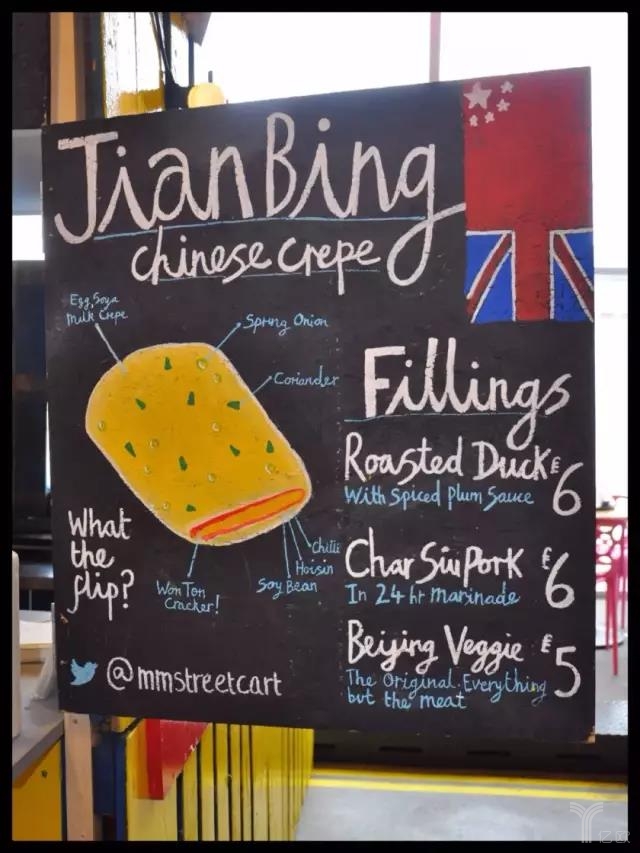 JianBing
chinese crepe
Egg, Soya
Milk Crepe
Spring Onion
Coriander
What
the
flip?
Won Ton
Cracker!
Soy Bean
Hoisin
Chilli
@mmstreetcart
Fillings
Roasted Duck £6
With Spiced Plum Sauce
Char Siu Pork £6
In 24 hr marinade
Beijing Veggie £5
The Original. Everything
but the meat